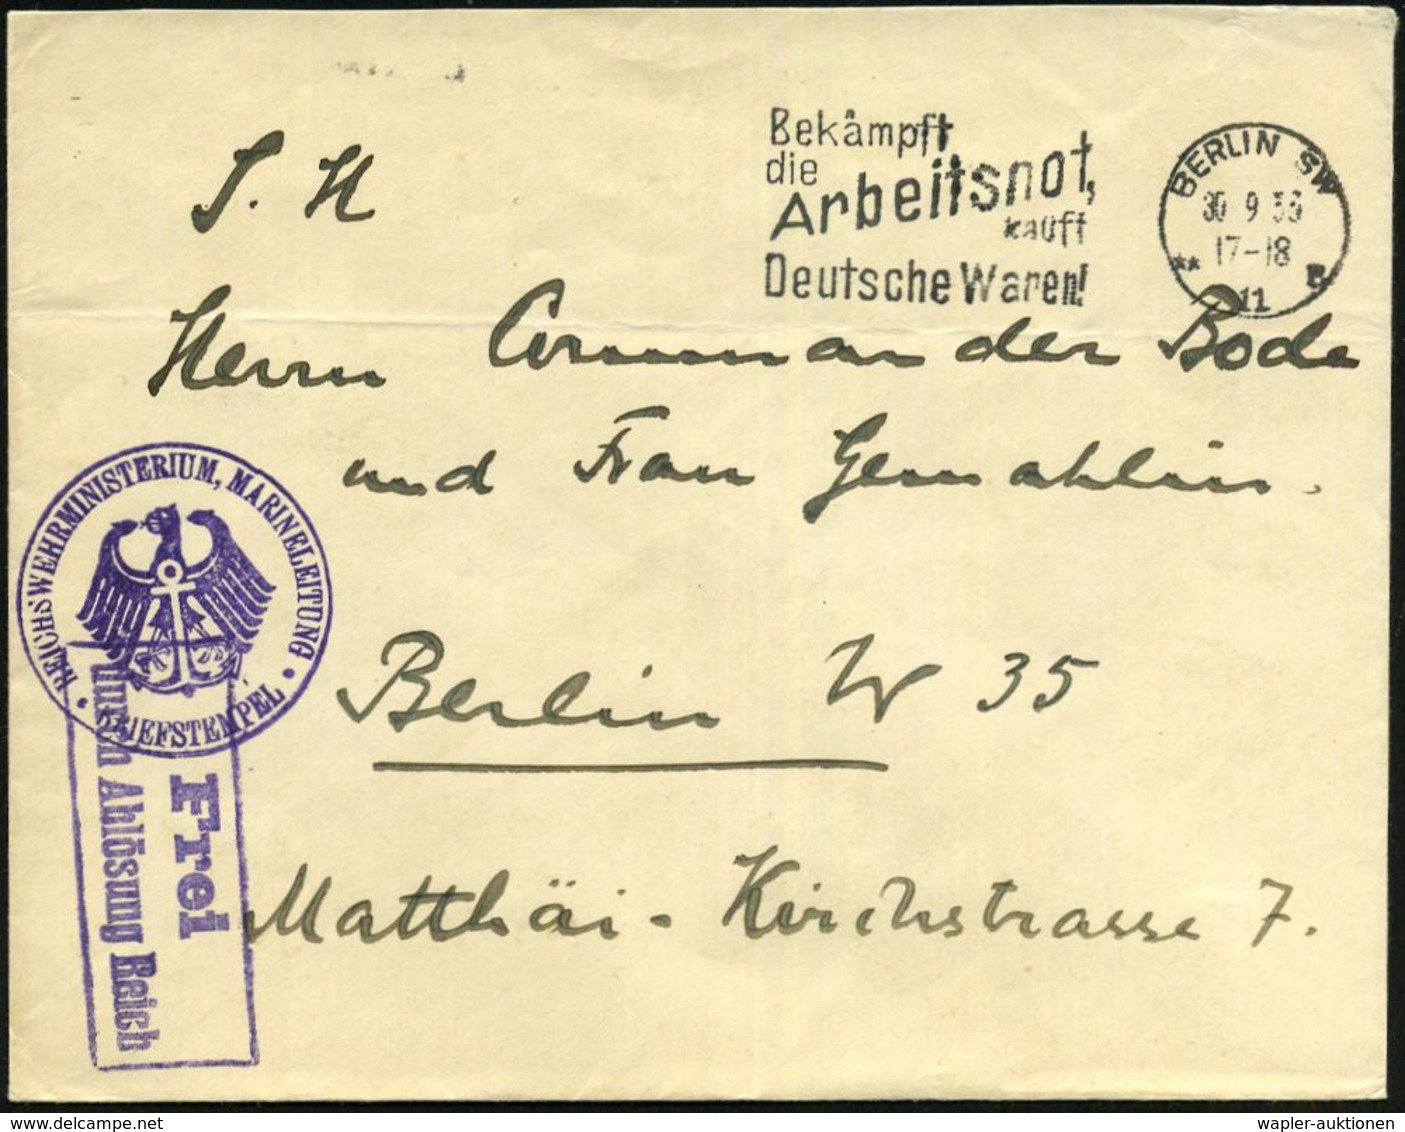 Bekämpft
die
Arbeitsnot,
kauft
Deutsche Waren!
BERLIN SW
30 9 33
17-18
** B
11
S. H
Herrn Commander Bode
und Frau Gemahlin.
Berlin W 35
Matthäi-Kirchstrasse 7.
REICHSWEHRMINISTERIUM, MARINELEITUNG
• BRIEFSTEMPEL •
Frei
durch Ablösung Reich
www.delcampe.net
wapler-auktionen